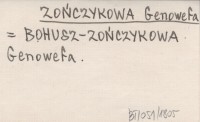 ZOŃCZYKOWA Genowefa
= BOHUSZ-ZOŃCZYKOWA
Genowefa.
BJ/051/1805